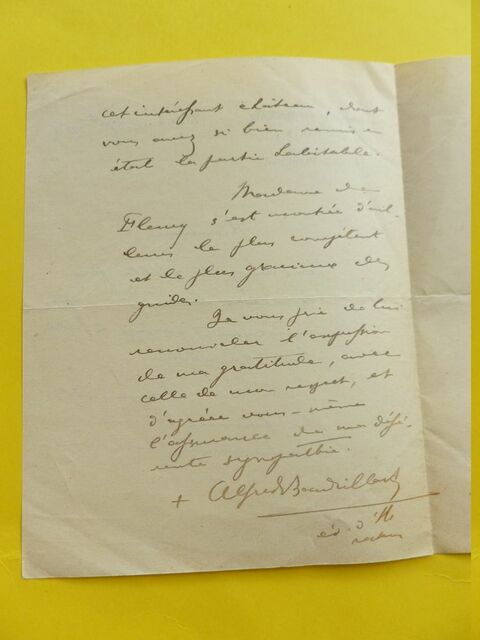 cet intéressant château, dont
vous avez si bien remis en
état la partie habitable.
Madame de
Fleury s'est montrée d'ail-
leurs le plus compétent
et le plus gracieux des
guides.
Je vous prie de lui
renouveler l'expression
de ma gratitude, avec
celle de mon respect, et
d'agréer vous-même
l'assurance de ma défé-
rente sympathie.
+ Alfred Baudrillart
év. d'H
recteur